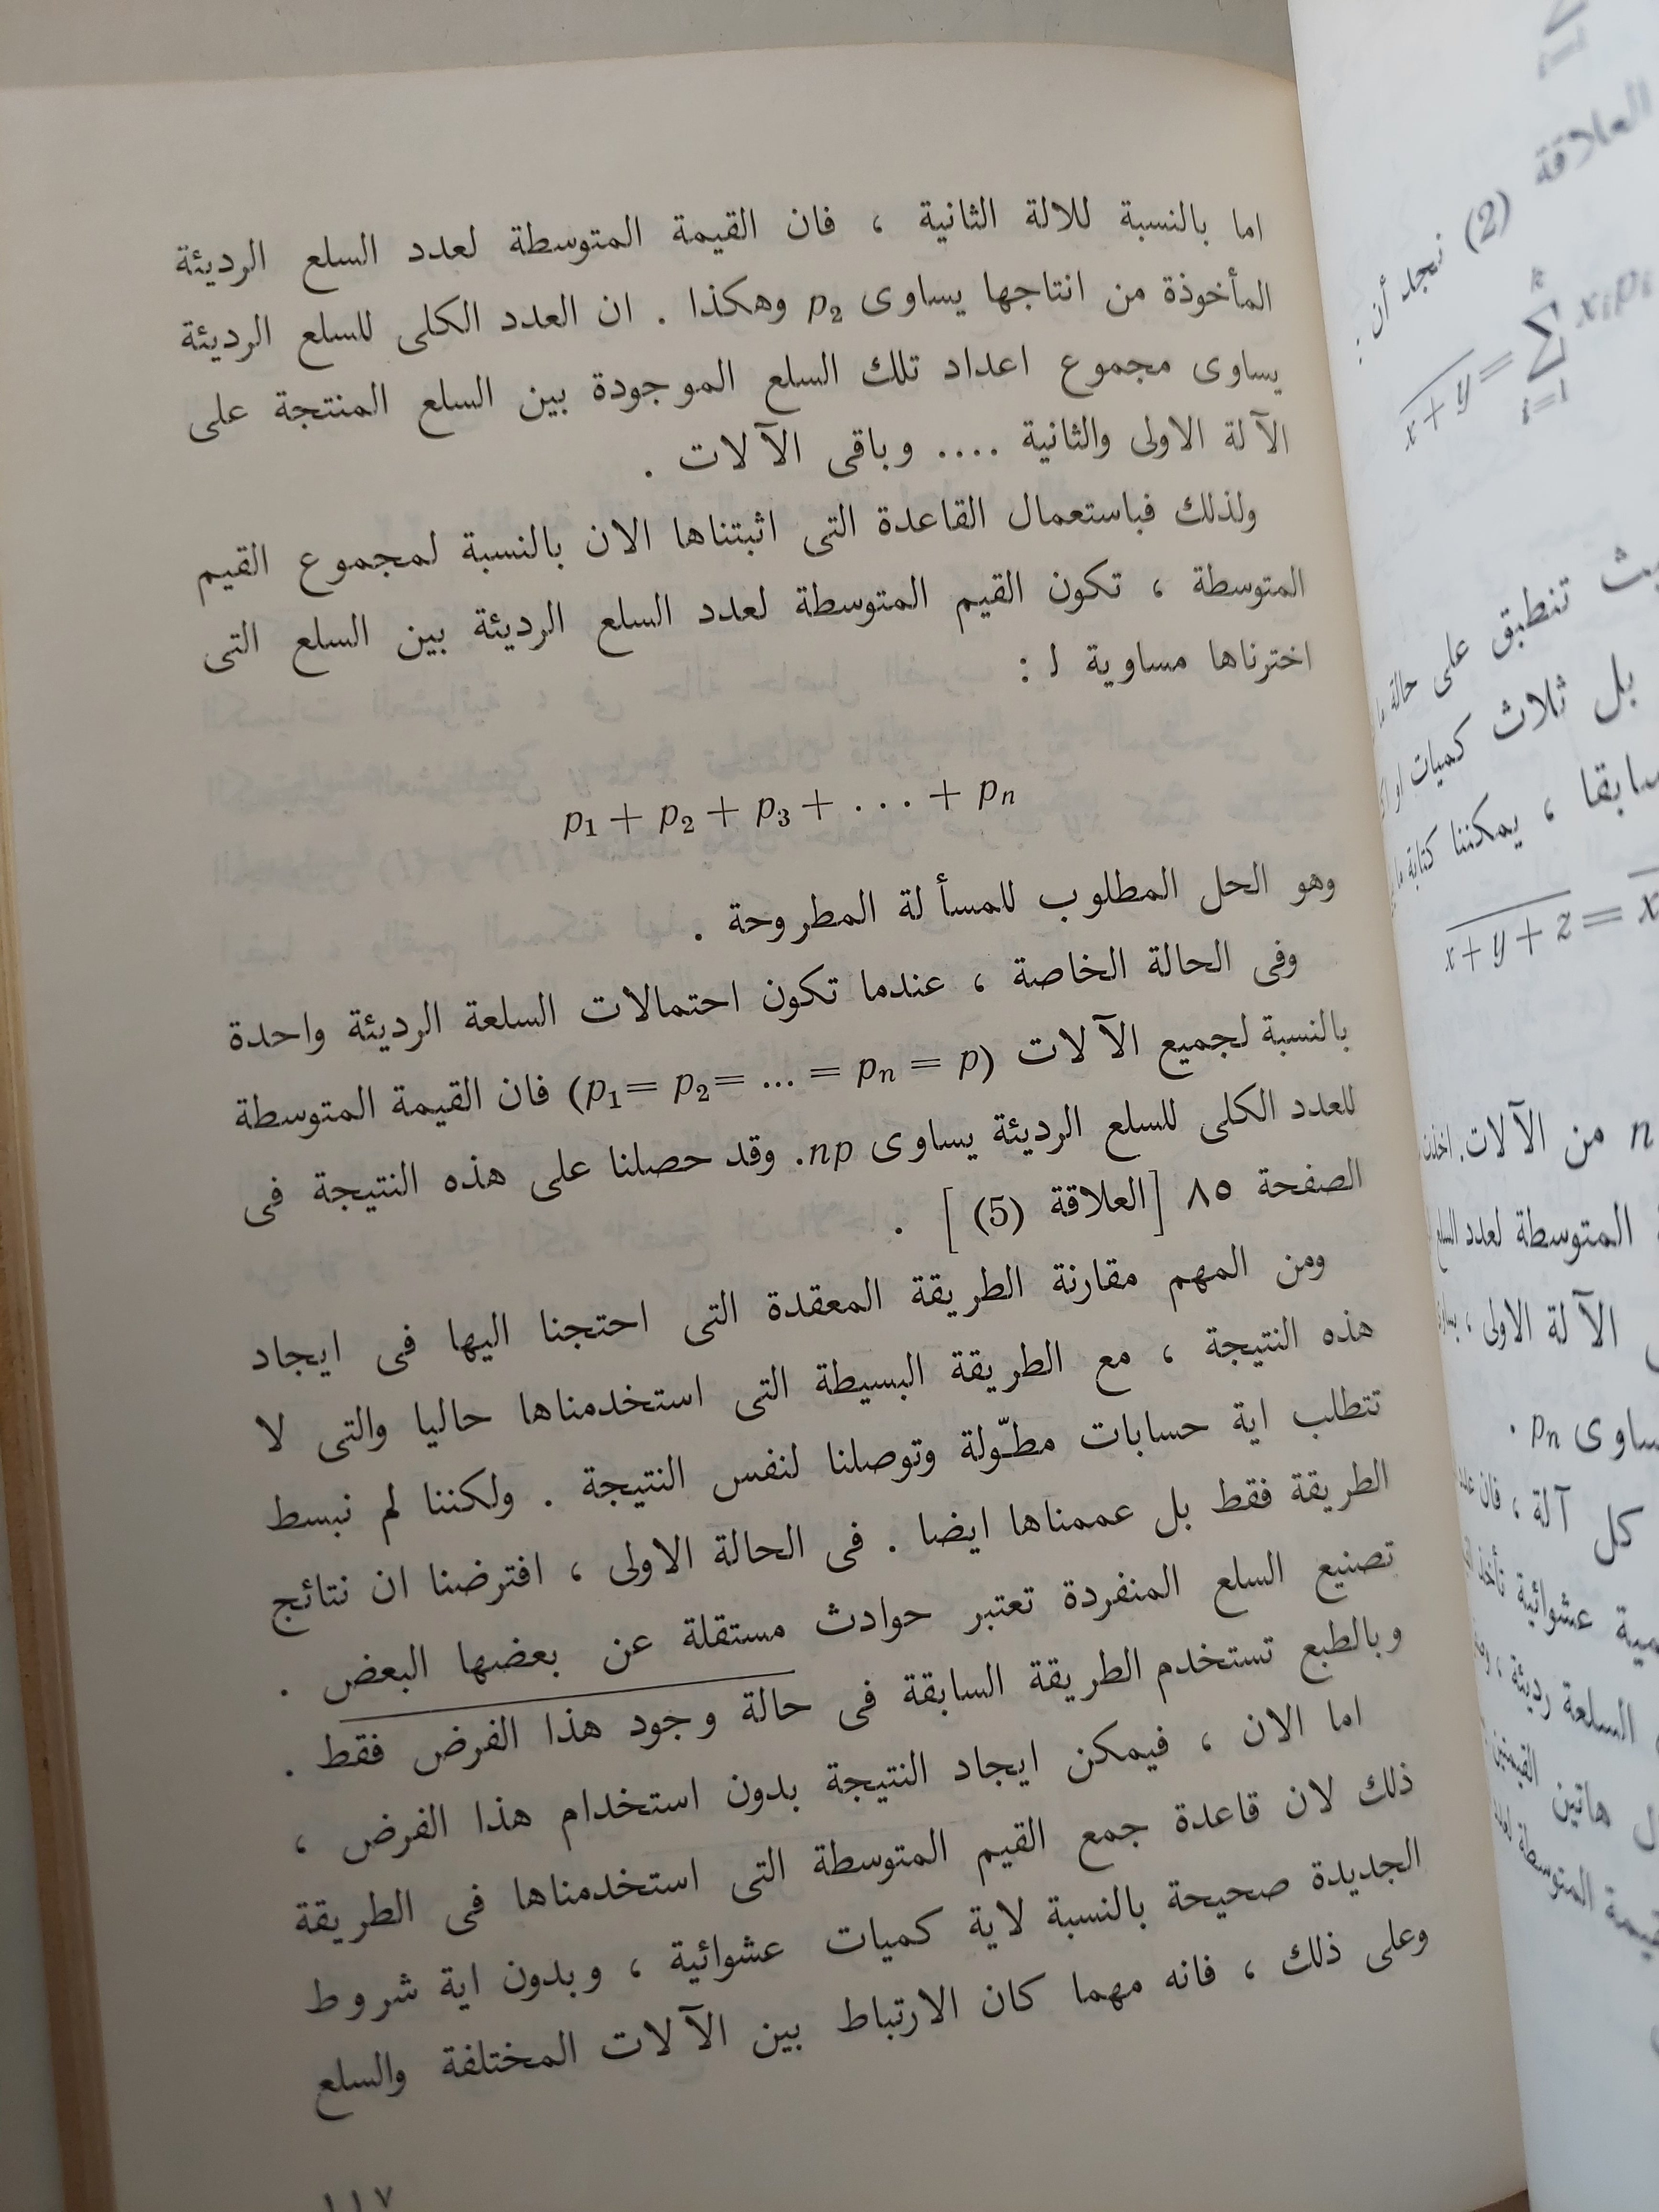 اما بالنسبة للالة الثانية ، فان القيمة المتوسطة لعدد السلع الرديئة
المأخوذة من انتاجها يساوى p₂ وهكذا . ان العدد الكلى للسلع الرديئة
يساوى مجموع اعداد تلك السلع الموجودة بين السلع المنتجة على
الآلة الاولى والثانية .... وباقى الآلات .
ولذلك فباستعمال القاعدة التى اثبتناها الان بالنسبة لمجموع القيم
المتوسطة ، تكون القيم المتوسطة لعدد السلع الرديئة بين السلع التى
اخترناها مساوية ل :
p₁ + p₂ + p₃ + . . . + pₙ
وهو الحل المطلوب للمسألة المطروحة .
وفى الحالة الخاصة ، عندما تكون احتمالات السلعة الرديئة واحدة
بالنسبة لجميع الآلات (p₁ = p₂ = ... = pₙ = p) فان القيمة المتوسطة
للعدد الكلى للسلع الرديئة يساوى np. وقد حصلنا على هذه النتيجة فى
الصفحة ٨٥ [العلاقة (5) ] .
ومن المهم مقارنة الطريقة المعقدة التى احتجنا اليها فى ايجاد
هذه النتيجة ، مع الطريقة البسيطة التى استخدمناها حاليا والتى لا
تتطلب اية حسابات مطوّلة وتوصلنا لنفس النتيجة . ولكننا لم نبسط
الطريقة فقط بل عممناها ايضا . فى الحالة الاولى ، افترضنا ان نتائج
تصنيع السلع المنفردة تعتبر حوادث مستقلة عن بعضها البعض .
وبالطبع تستخدم الطريقة السابقة فى حالة وجود هذا الفرض فقط .
اما الان ، فيمكن ايجاد النتيجة بدون استخدام هذا الفرض ،
ذلك لان قاعدة جمع القيم المتوسطة التى استخدمناها فى الطريقة
الجديدة صحيحة بالنسبة لاية كميات عشوائية ، وبدون اية شروط
وعلى ذلك ، فانه مهما كان الارتباط بين الآلات المختلفة والسلع
١١٧
العلاقة (2) نجد أن :
x+y = ∑ xᵢpᵢ
k
i=1
تنطبق على حالة
بل ثلاث كميات
، يمكننا كتابة
x+y+z =
n من الآلات.
المتوسطة لعدد
الآلة الاولى ،
pₙ .
كل آلة ، فان
عشوائية
السلعة رديئة ،
هاتين
المتوسطة